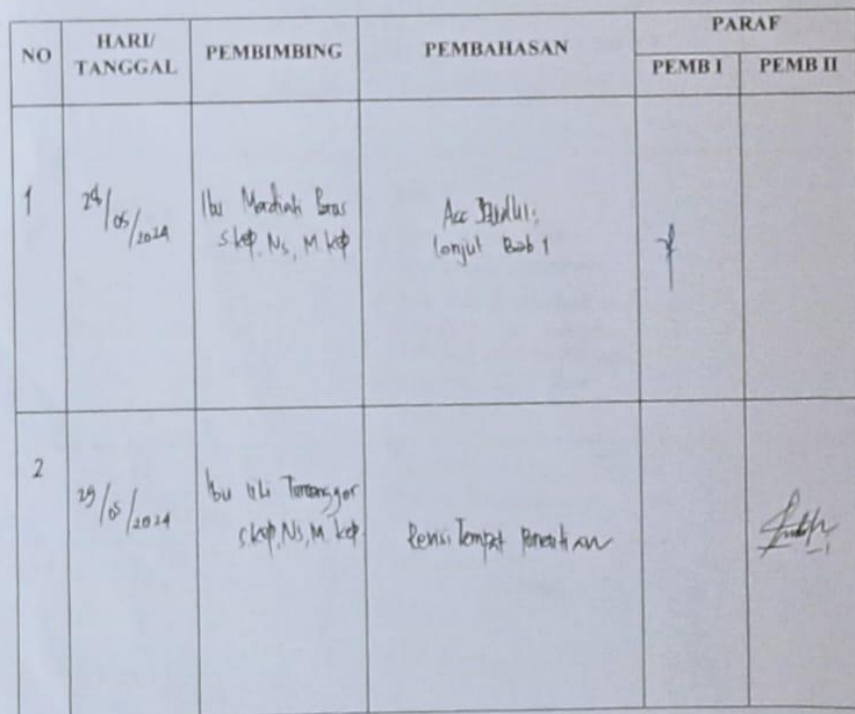 NO HARI/ TANGGAL PEMBIMBING PEMBAHASAN PARAF
PEMB I PEMB II
1 28/05/2024 Ibu Mardiati Barus Acc Judul;
S.kep, Ns, M.kep lanjut Bab 1
2 29/05/2024 Ibu Lili Tumanggor
S.kep, Ns, M.kep Revisi Tempat Penelitian